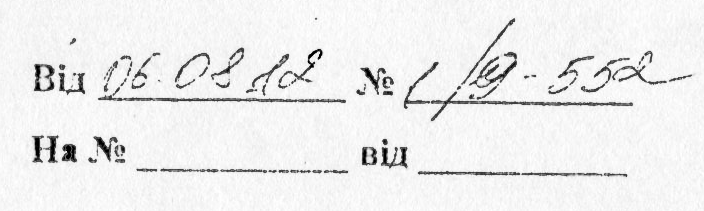 Від 06.08.12 № 1/9-552
На № від